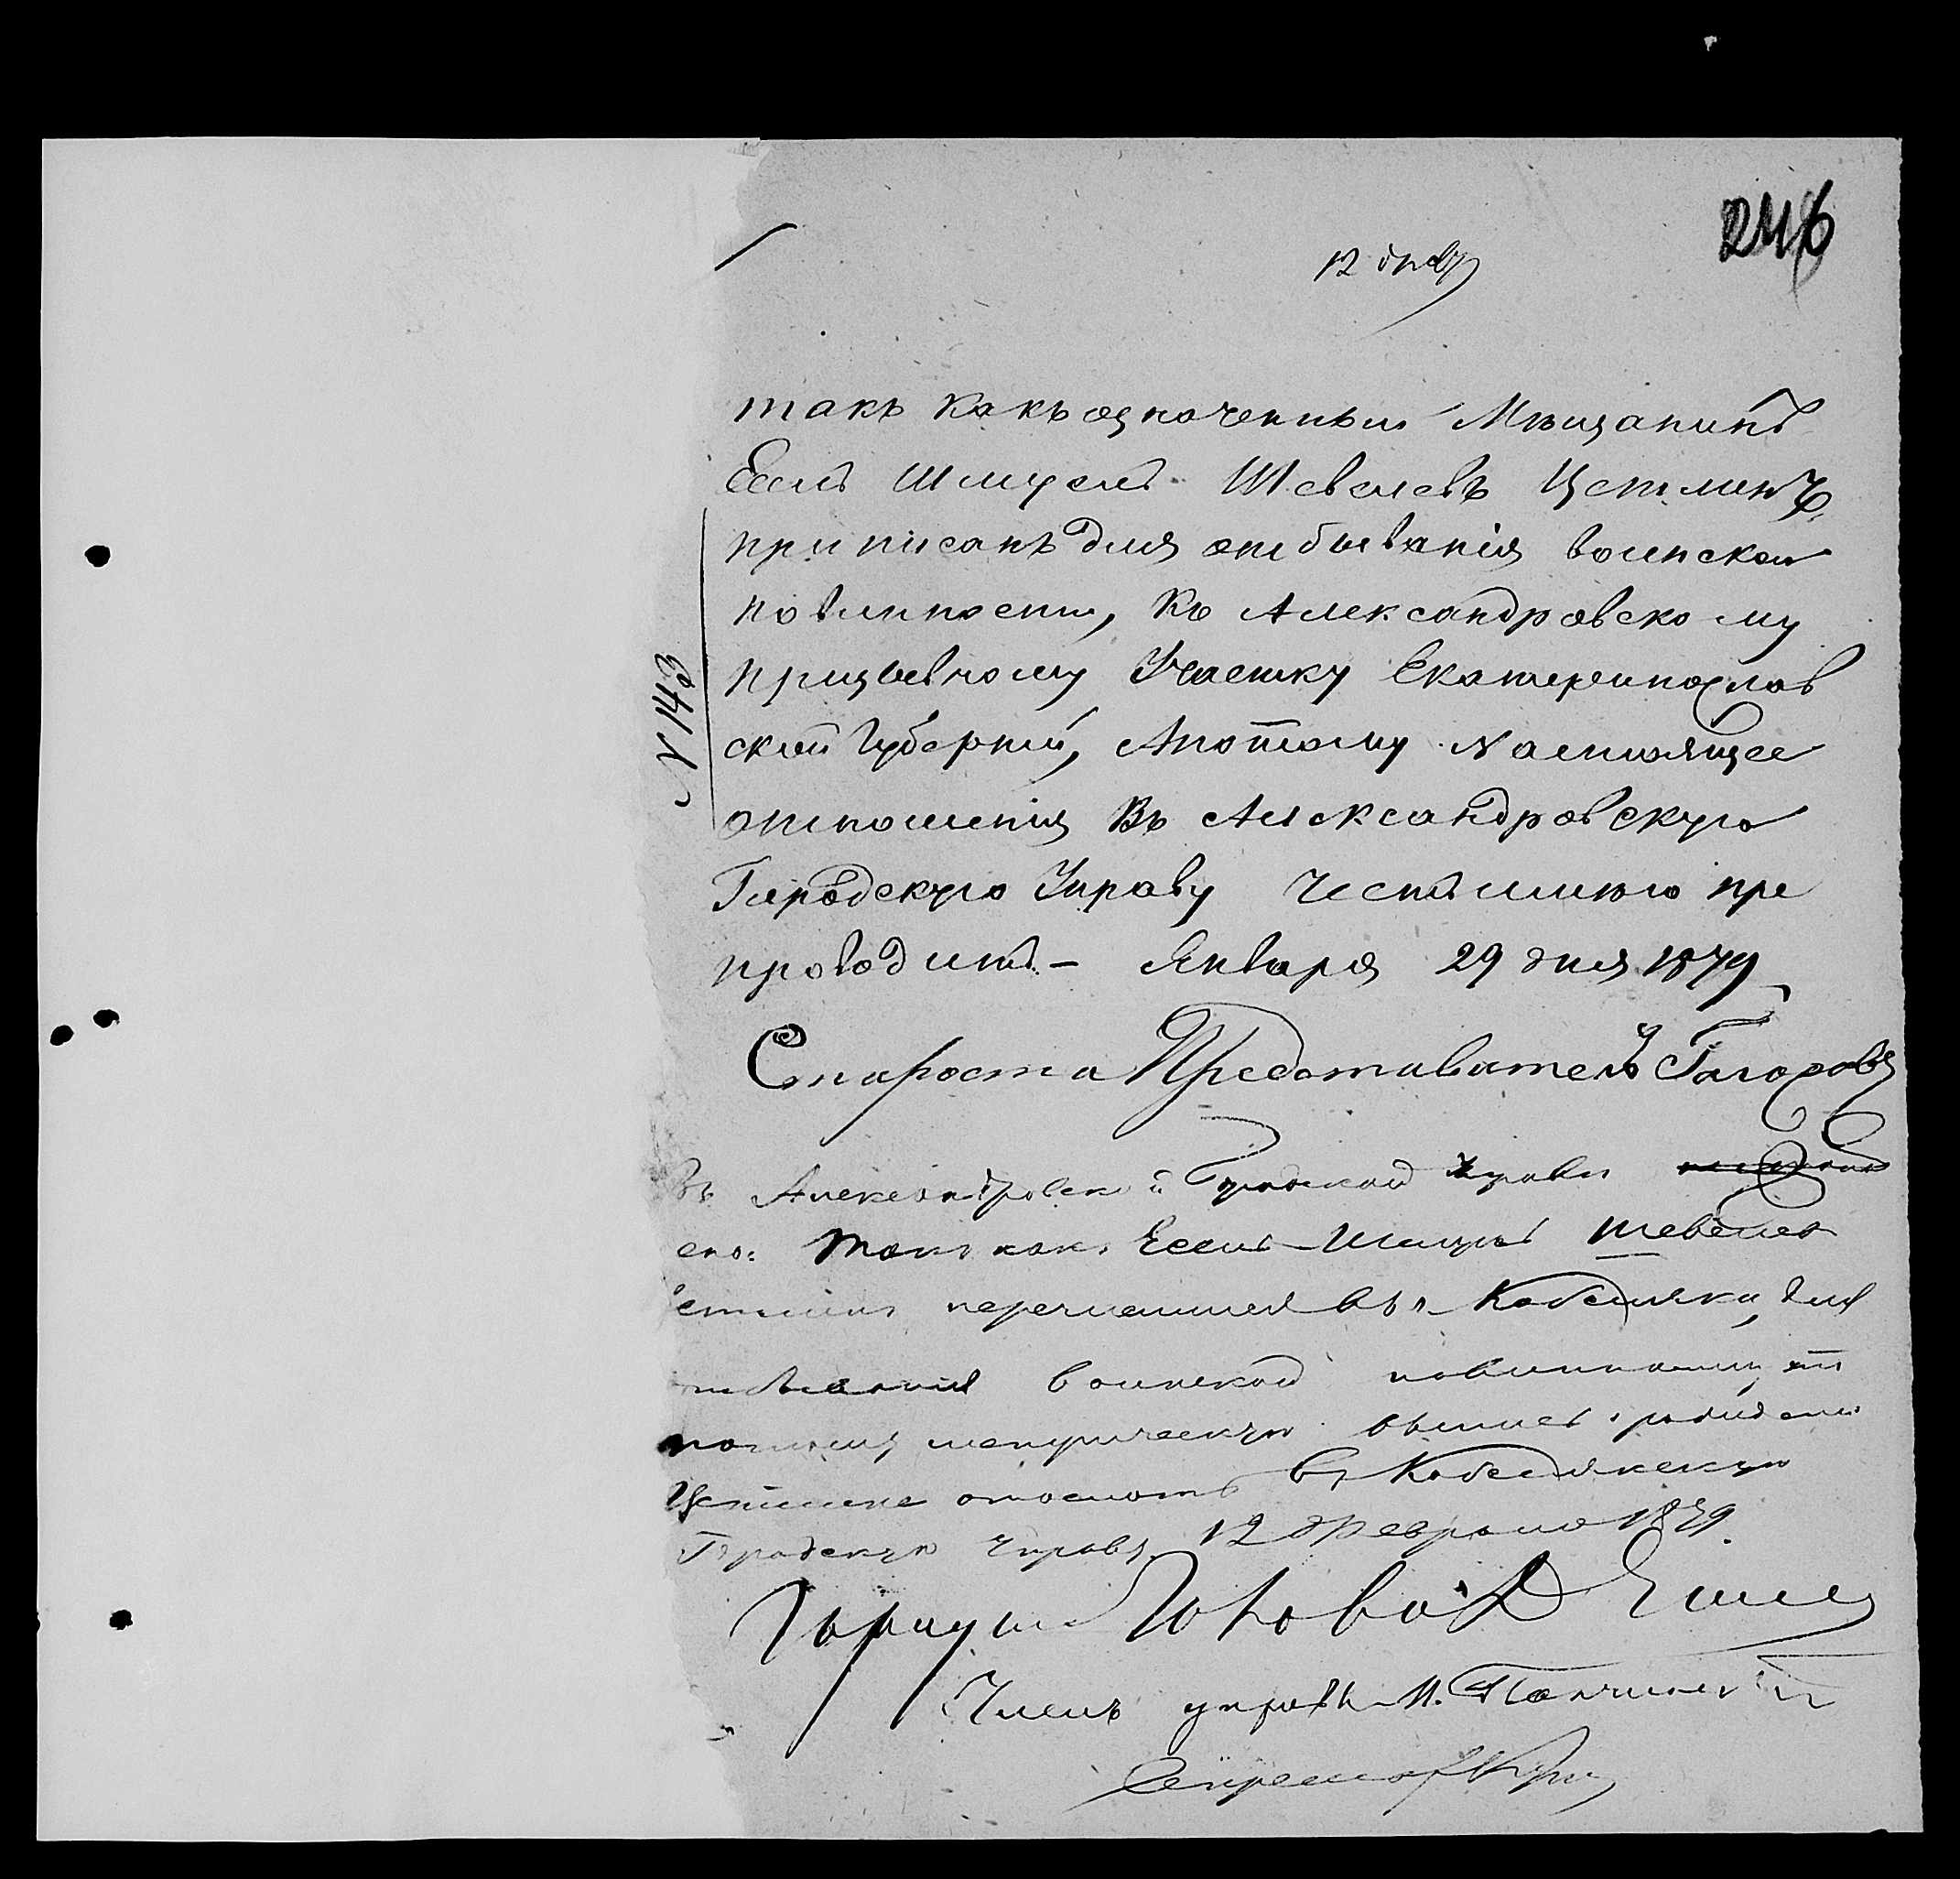 246
12 февр
такъ какъ означенный Мѣщанинъ
Есель Шмуель Шевелевъ Цетлинъ,
приписанъ для отбыванія воинской
повинности, Къ Александровскому
призывному Участку Екатеринослав
ской Губерніи, Апотому Настоящее
отношенія Въ Александровскую
Городскую Управу Честь имѣю пре
проводить - Января 29 дня 1879
№ 143
Староста Представитель
Въ Александровской Городской Управѣ
ено: Такъ какъ Есель-Шмуель Шевелев
етлинъ перечислился въ г. Кобеляки, для
отбыванія воинской повинности, то
потому метрическую выпись о рожденіи
Цетлина отослать въ Кобелякскую
Городскую Управу. 12 Февраля 1879.
Городской Голова
Членъ управы М.
Секретарь